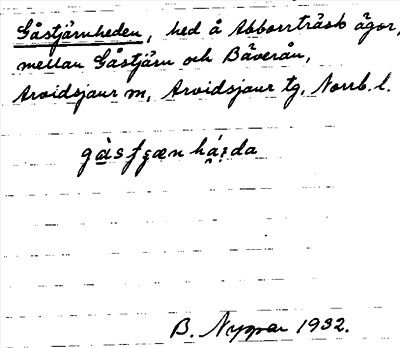 Gåstjärnheden, hed å Abborrträsk ägor,
mellan Gåstjärn och Bäverån,
Arvidsjaur sn, Arvidsjaur tg, Norrb. l.
B. Nygren 1932.